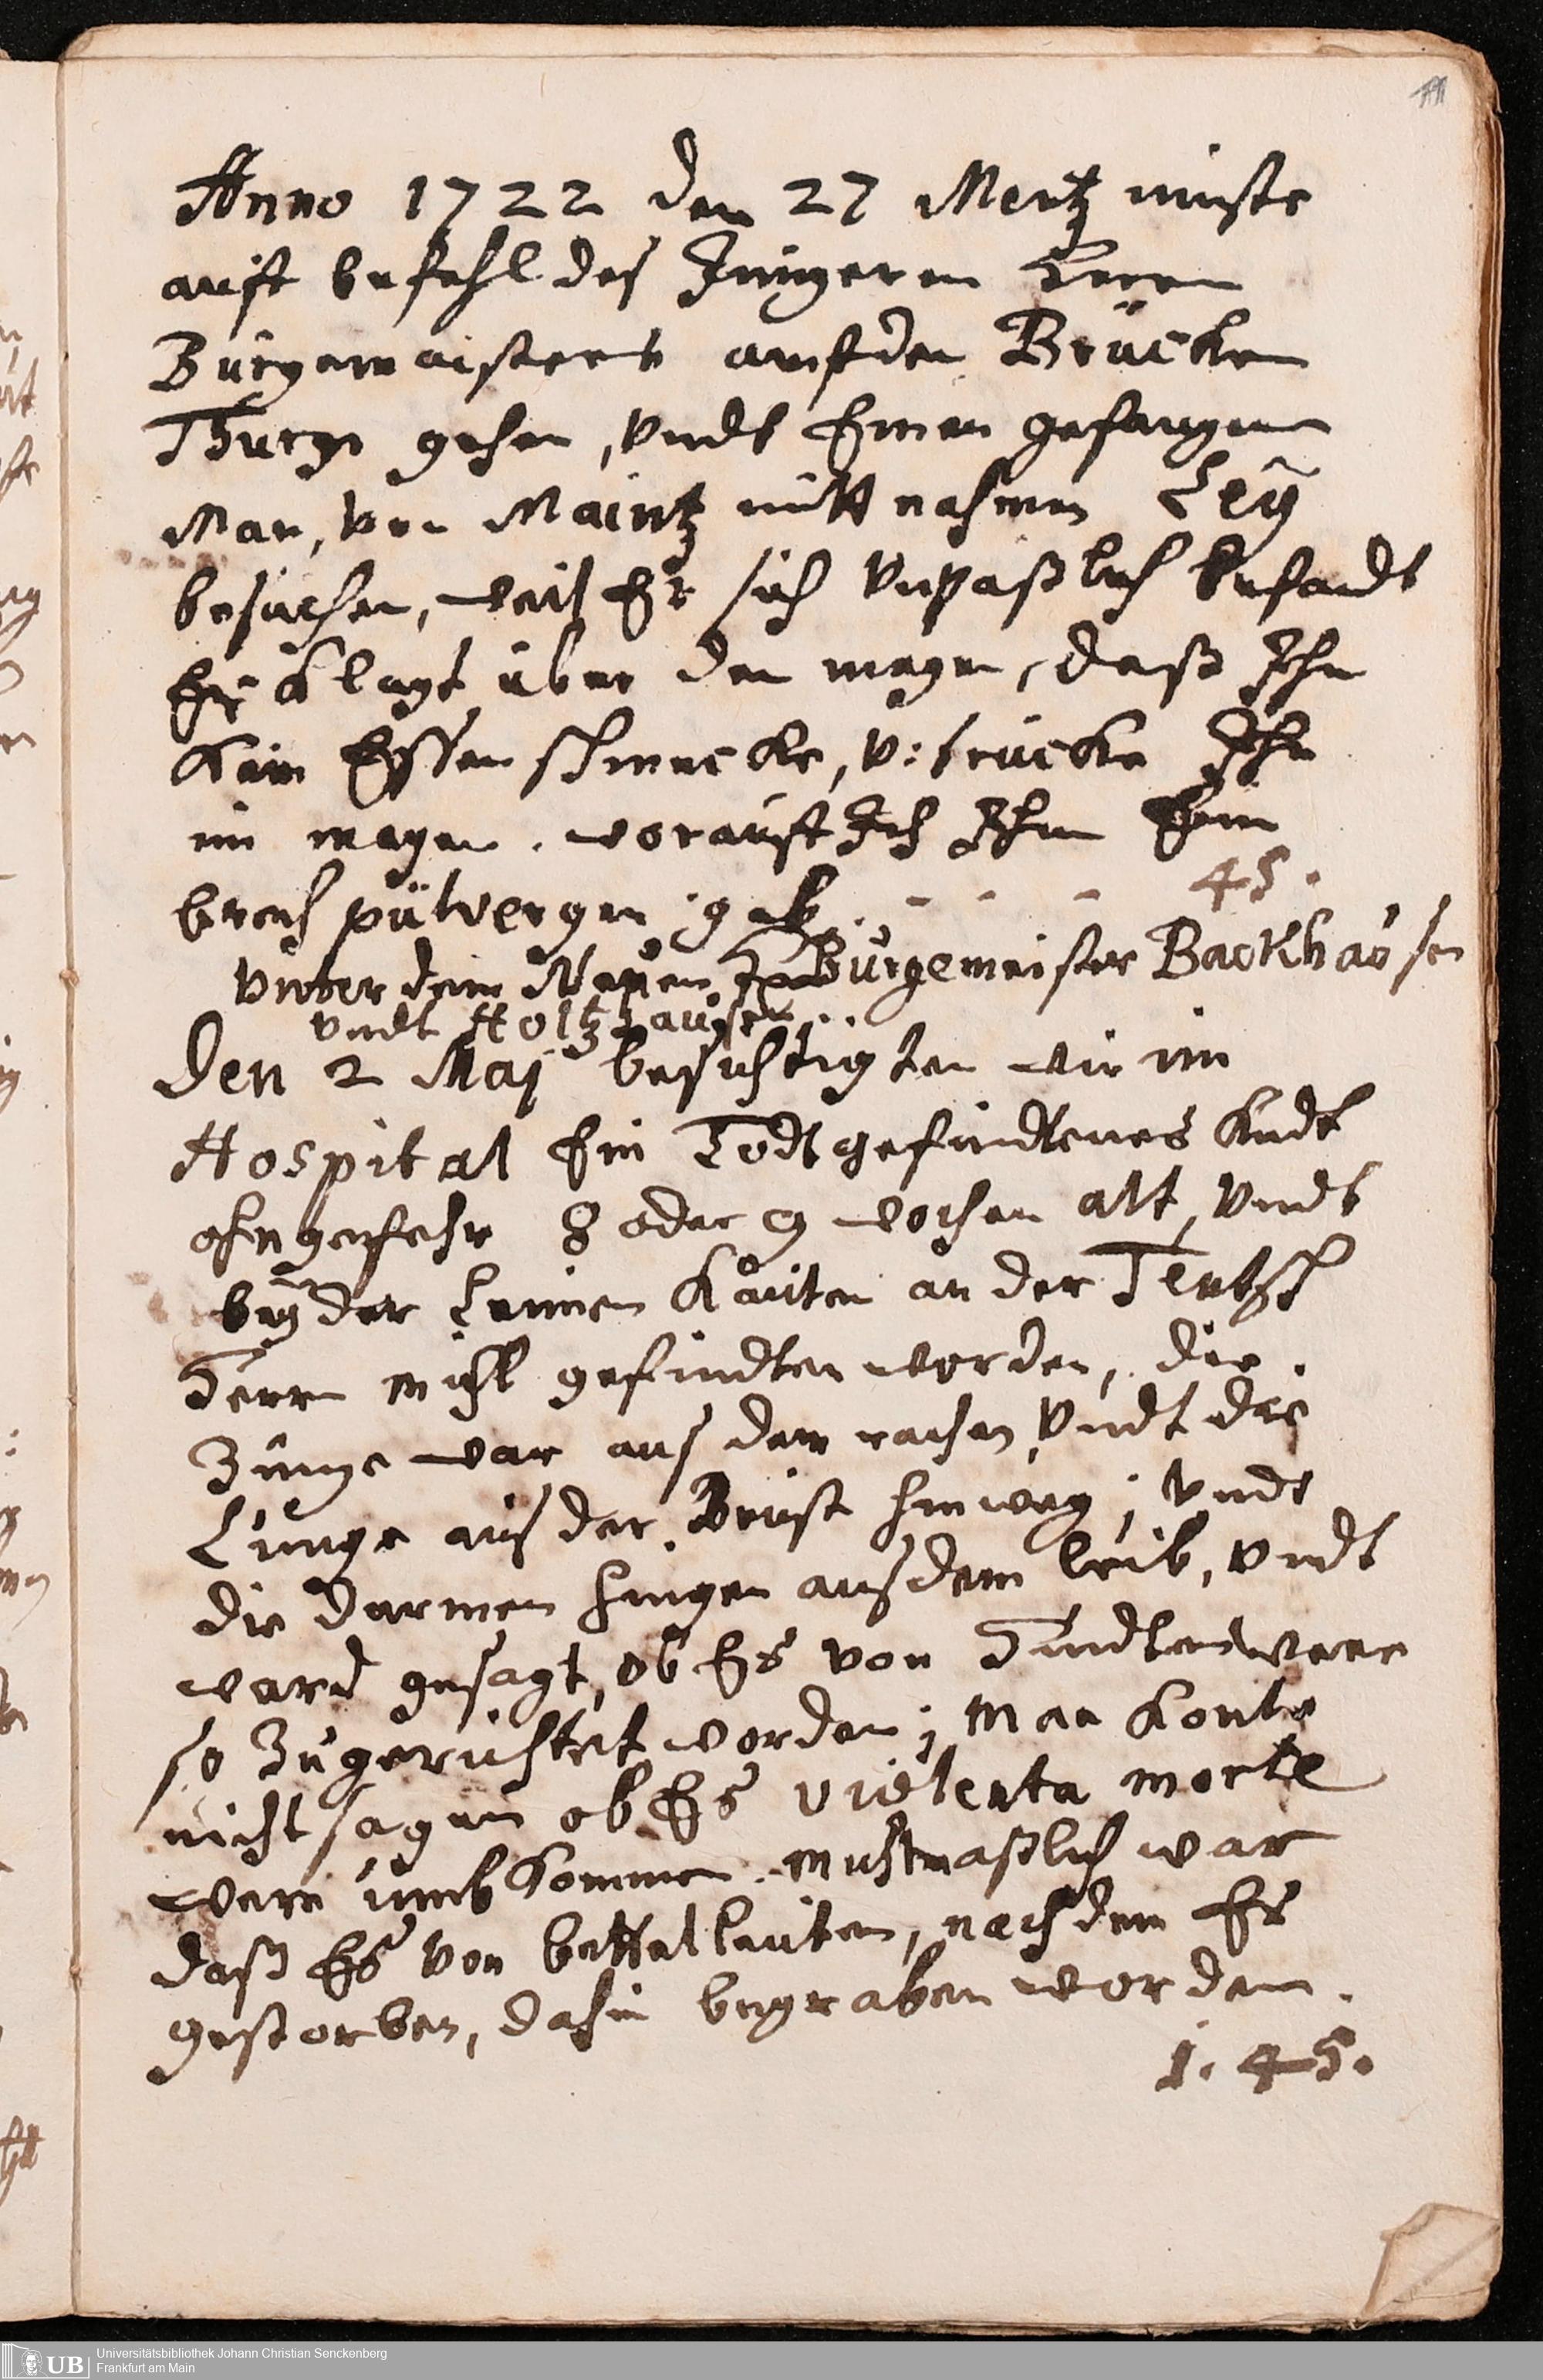 Anno 1722 den 27 Mertz muste
auff befehl des Jüngeren Herrn
Bürgermeisters auff den Brücken
Thurn gehen, vndt Einen gefangenen
Man, von Maintz mitt nahmen Ley
besuchen, weil Er sich vnpaßlich befandt
Er klagt über den magen, daß Ihm
kein Essen schmecke, v: trücke Ihn
im magen. worauff Ich Ihm Ein
brech pülvergen gab. - - - 45.
vnter dem Neuen Bürgemeister Backhausen
vndt Holtzhausen..
Den 2 Maj besichtigten wir im
Hospital Ein Todt gefundtenes Kindt
ohngefehr 8 oder 9 wochen alt, vndt
bey der Leimen Kauten an der Teutsch
Herrn mühl gefundten worden, die
Zunge war aus dem rachen, vndt die
Lunge aus der Brust hinweg; vndt
die Darmen hingen aus dem leib, vndt
ward gesagt, ob Es von Hundten were
so zugerichtet worden; man konte
nicht sagen ob Es violenta morte
were umbkommen. muhtmaßlich war
daß Es von bettelleuten, nach dem Es
gestorben, dahin begraben worden.
1. 45.
Universitätsbibliothek Johann Christian Senckenberg
UB Frankfurt am Main